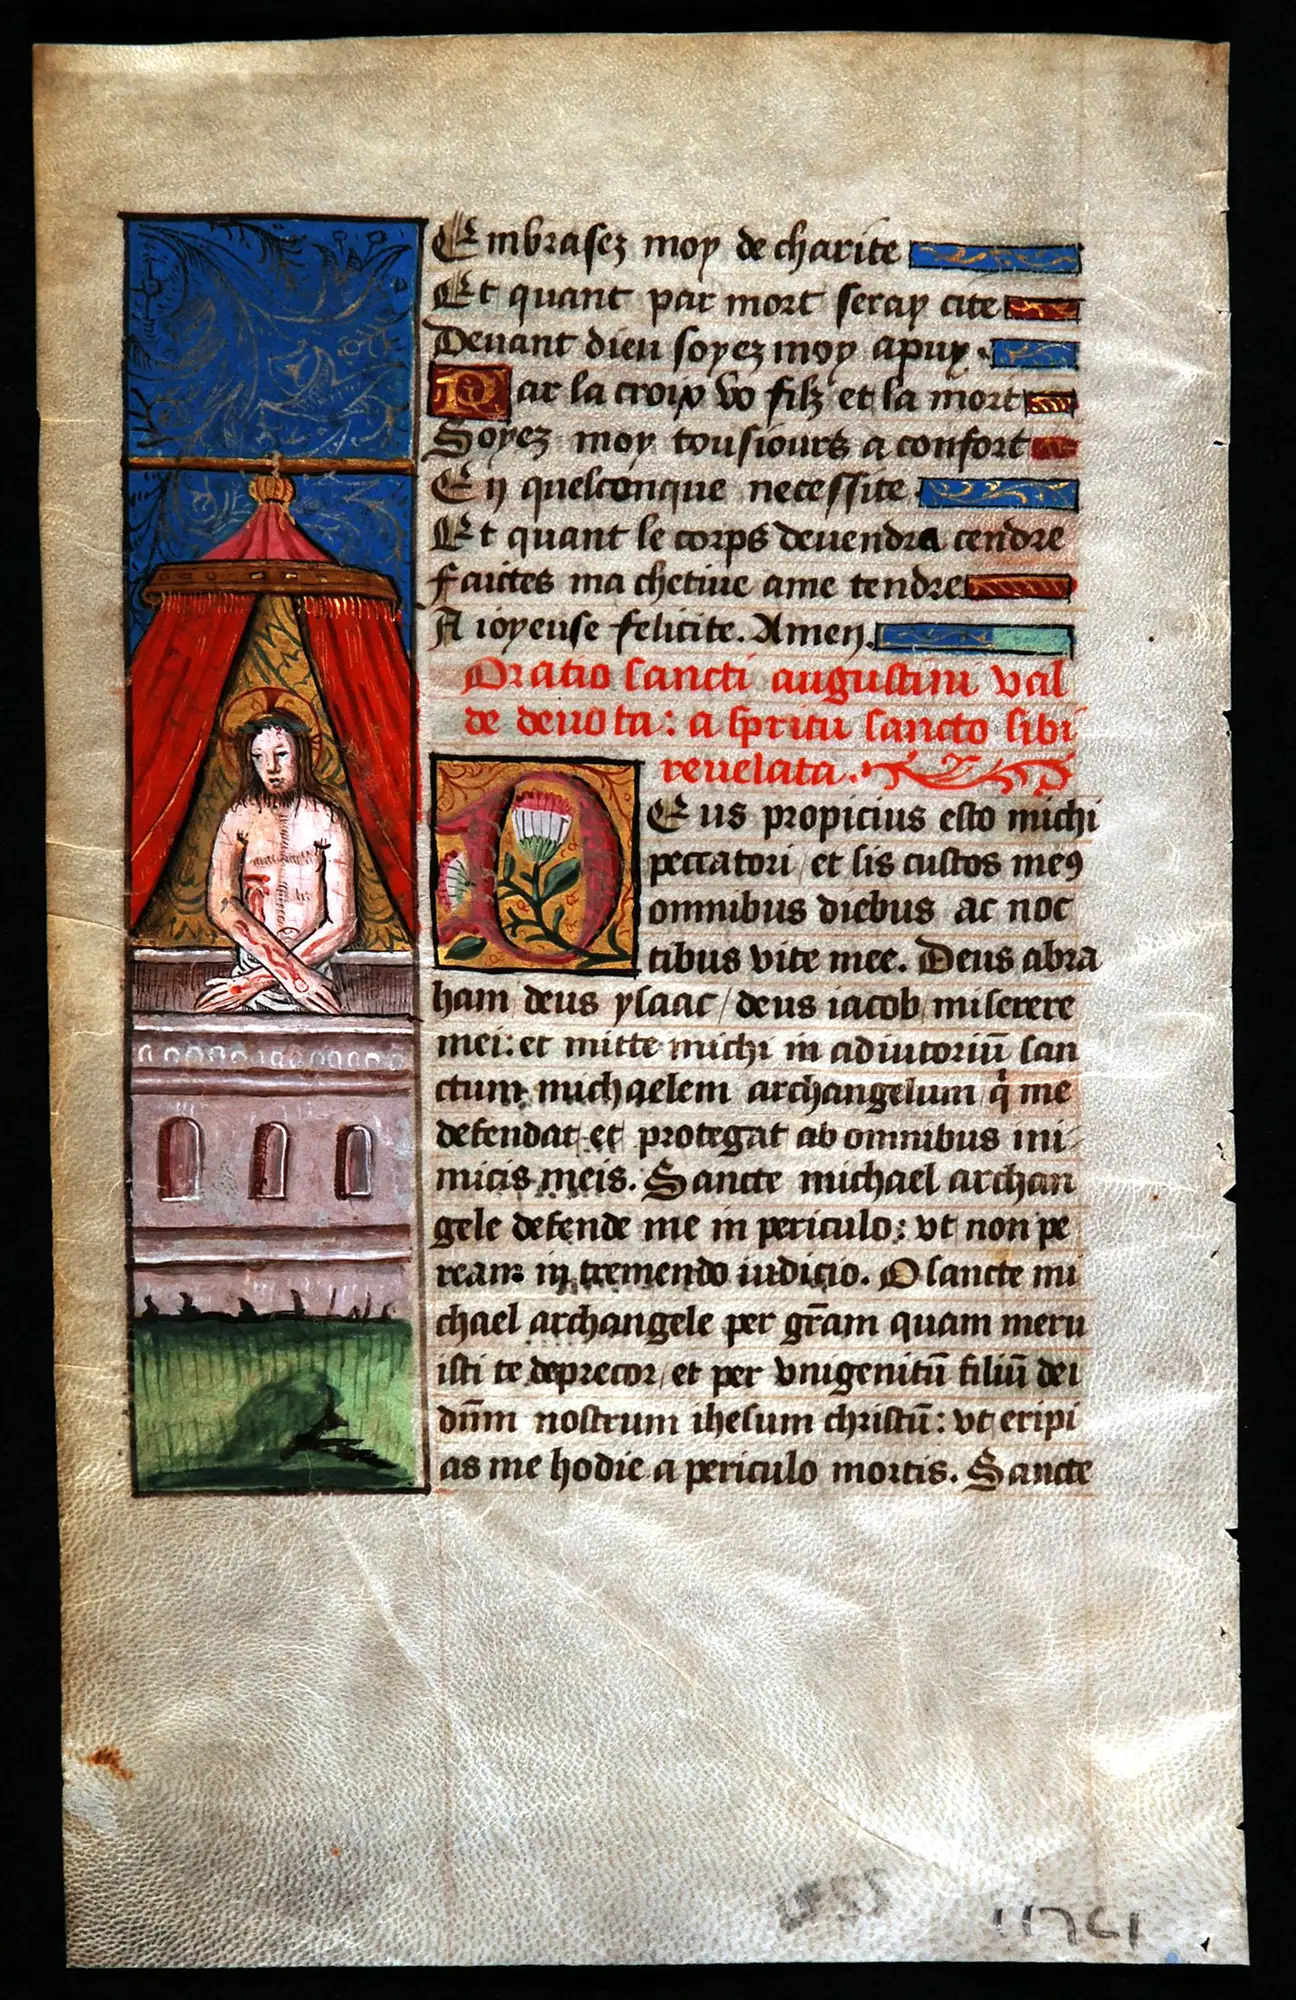 Embrasez moy de charite
Et quant par mort seray cite
Devant dieu soyez moy apuy.
Par la croix vo filz et la mort
Soyez moy tousiours a confort
En quelconque necessite.
Et quant le corps devendra cendre
Faictes ma chetive ame tendre
A ioyeuse felicite. Amen.
Oratio sancti augustini val
de devota: a spritu sancto sibi
revelata.
Deus propicius esto michi
peccatori / et sis custos meꝯ
omnibus diebus ac noc
tibus vite mee. Deus abra
ham deus ysaac / deus iacob miserere
mei: et mitte michi in adiutoriū san
ctum michaelem archangelum q̇ me
defendat et protegat ab omnibus ini
micis meis. Sancte michael archan
gele defende me in periculo: vt non pe
ream in tremendo iudicio. O sancte mi
chael archangele per gr̄am quam meru
isti te deprecor / et per vnigenitū filiū dei
dn̄m nostrum ihesum christū: vt eripi
as me hodie a periculo mortis. Sancte